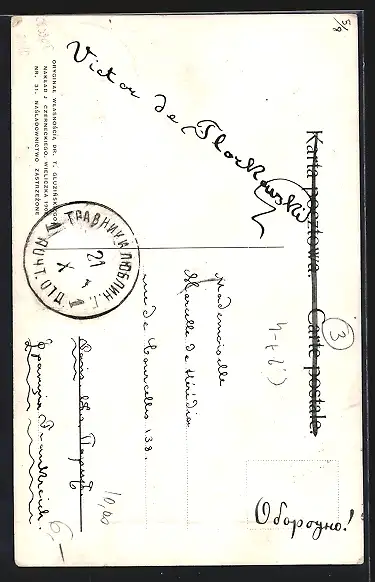 Karta pocztowa. Carte postale.
Victor de Tlockowski
ORYGINAŁ WŁASNOŚCIĄ DR. T. GLUZIŃSKIEGO
NAKŁAD J. CZERNECKIEGO, WIELICZKA 190
NR. 31. NAŚLADOWNICTWO ZASTRZEŻONE
ТРАВНИКИ ЛЮБЛИН. Г.
ПОЧТ. ОТД.
21
X
Mademoiselle
Marcelle de Hérédia
rue de Courcelles 138.
Paris
Франція Frankreich.
3
5/8
10,00
6,–
Обородно!